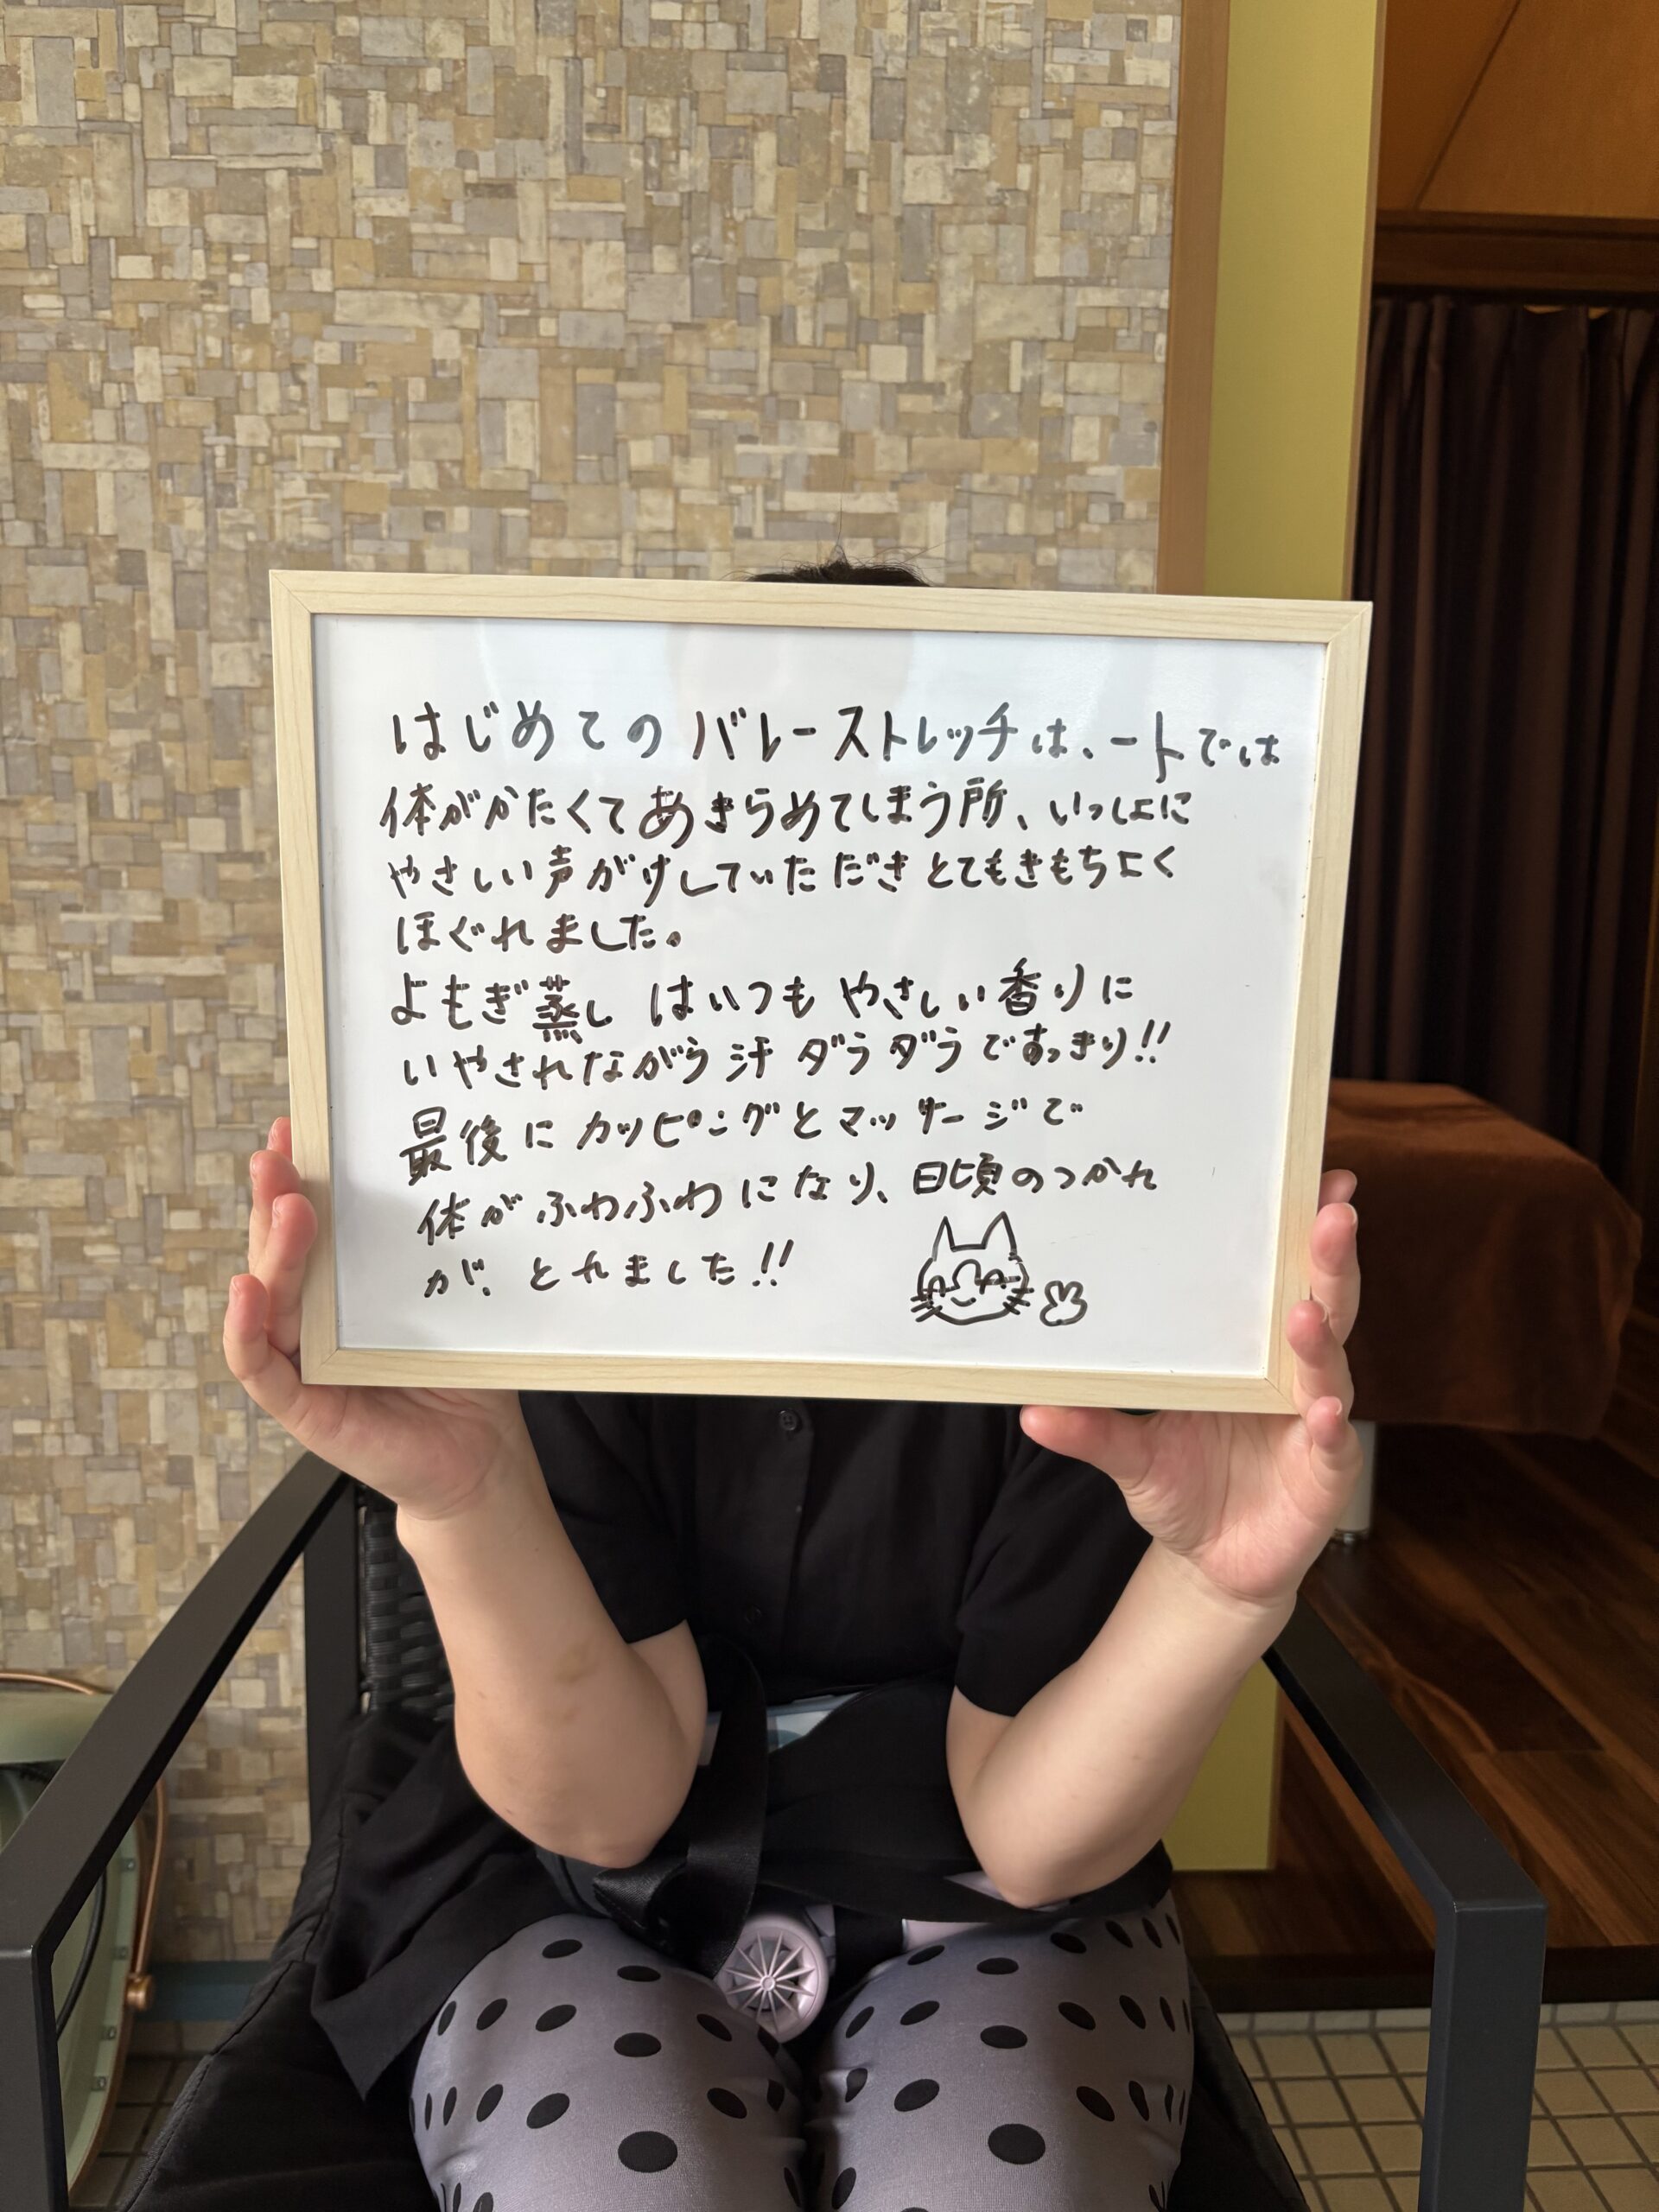 はじめてのバレーストレッチは、一人では
体がかたくてあきらめてしまう所、いっしょに
やさしい声がけしていただきとてもきもちよく
ほぐれました。
よもぎ蒸しはいつもやさしい香りに
いやされながら汗ダラダラですっきり!!
最後にカッピングとマッサージで
体がふわふわになり、日頃のつかれ
が、とれました!!